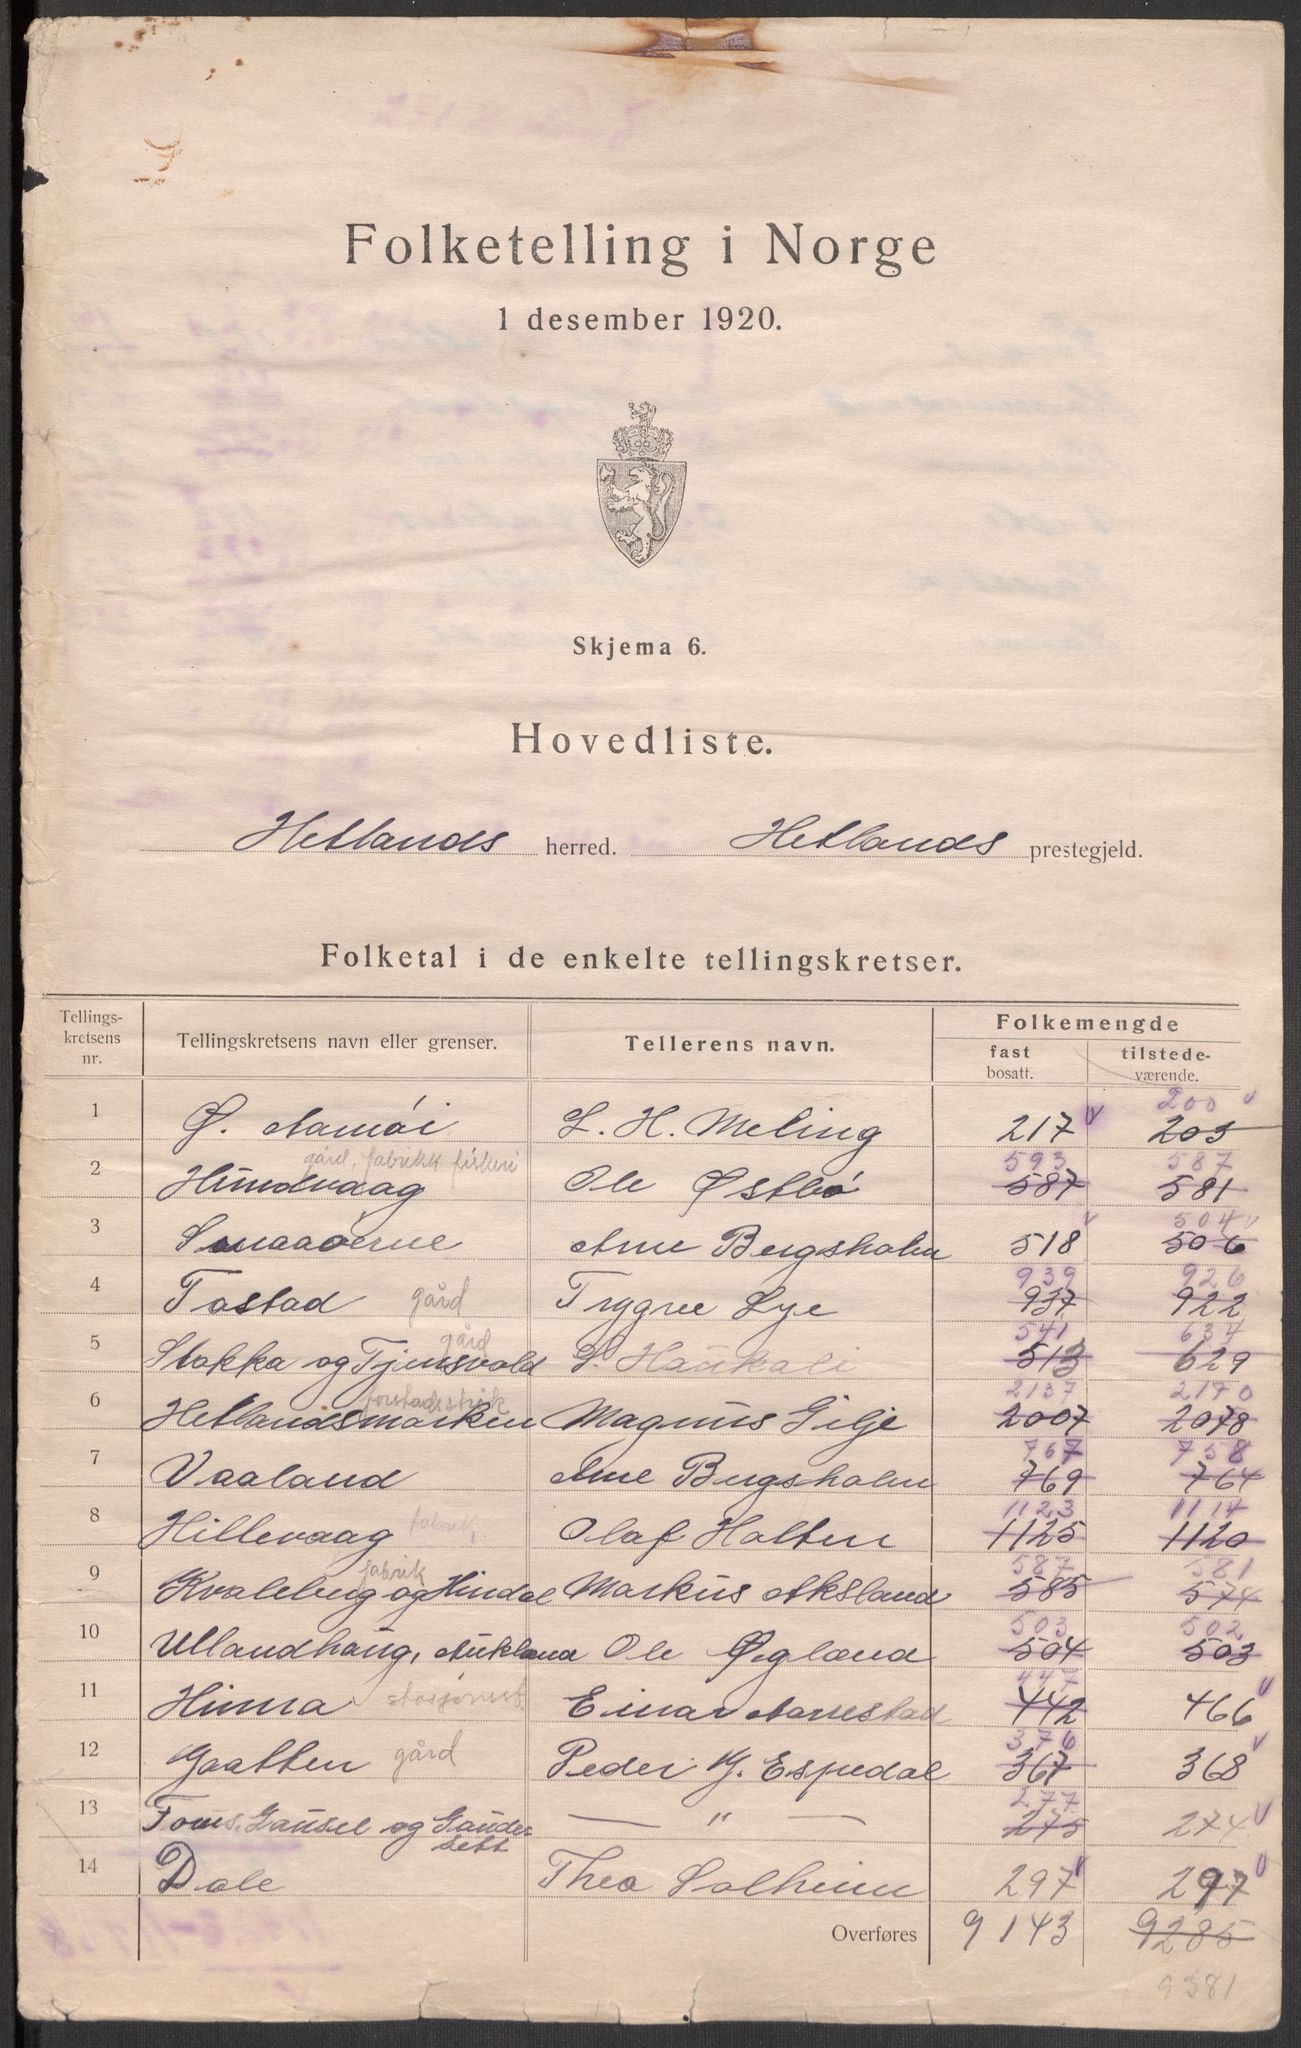 Folketelling i Norge
1 desember 1920.
Skjema 6.
Hovedliste.
Hetlands herred. Hetlands prestegjeld.
Folketal i de enkelte tellingskretser.
Tellings-kretsens nr. Tellingskretsens navn eller grenser. Tellerens navn. Folkemengde
fast bosatt. tilstede-værende.
200
1 Ø. Aamøi L. H. Meling 217 203
gård, fabrikk fiskeri 593 587
2 Hundvaag Ole Østbø 587 581
504
3 Smaaøerne Arne Bergsholm 518 506
939 926
4 Tastad gård Trygve Lye 937 922
gård 541 634
5 Stokka og Tjensvold S. Haukali 513 629
forstadsstrøk 2137 2170
6 Hetlandsmarken Magnus Gilje 2007 2078
767 758
7 Vaaland Arne Bergsholm 769 764
1123 1114
8 Hillevaag fabrik. Olaf Holten 1125 1120
fabrik 587 581
9 Kvaleberg og Hindal Markus Aksland 585 574
503 502
10 Ullandhaug, Aukland Ole Øgland 504 503
447
11 Hinna Einar Aarrestad 442 466
376
12 Gaatten gård Peder G. Espedal 367 368
277
13 Fors, Gausel og Gauder — " — 275 274
sett
14 Dale Thea Solheim 297 297
Overføres 9143 9285
9381